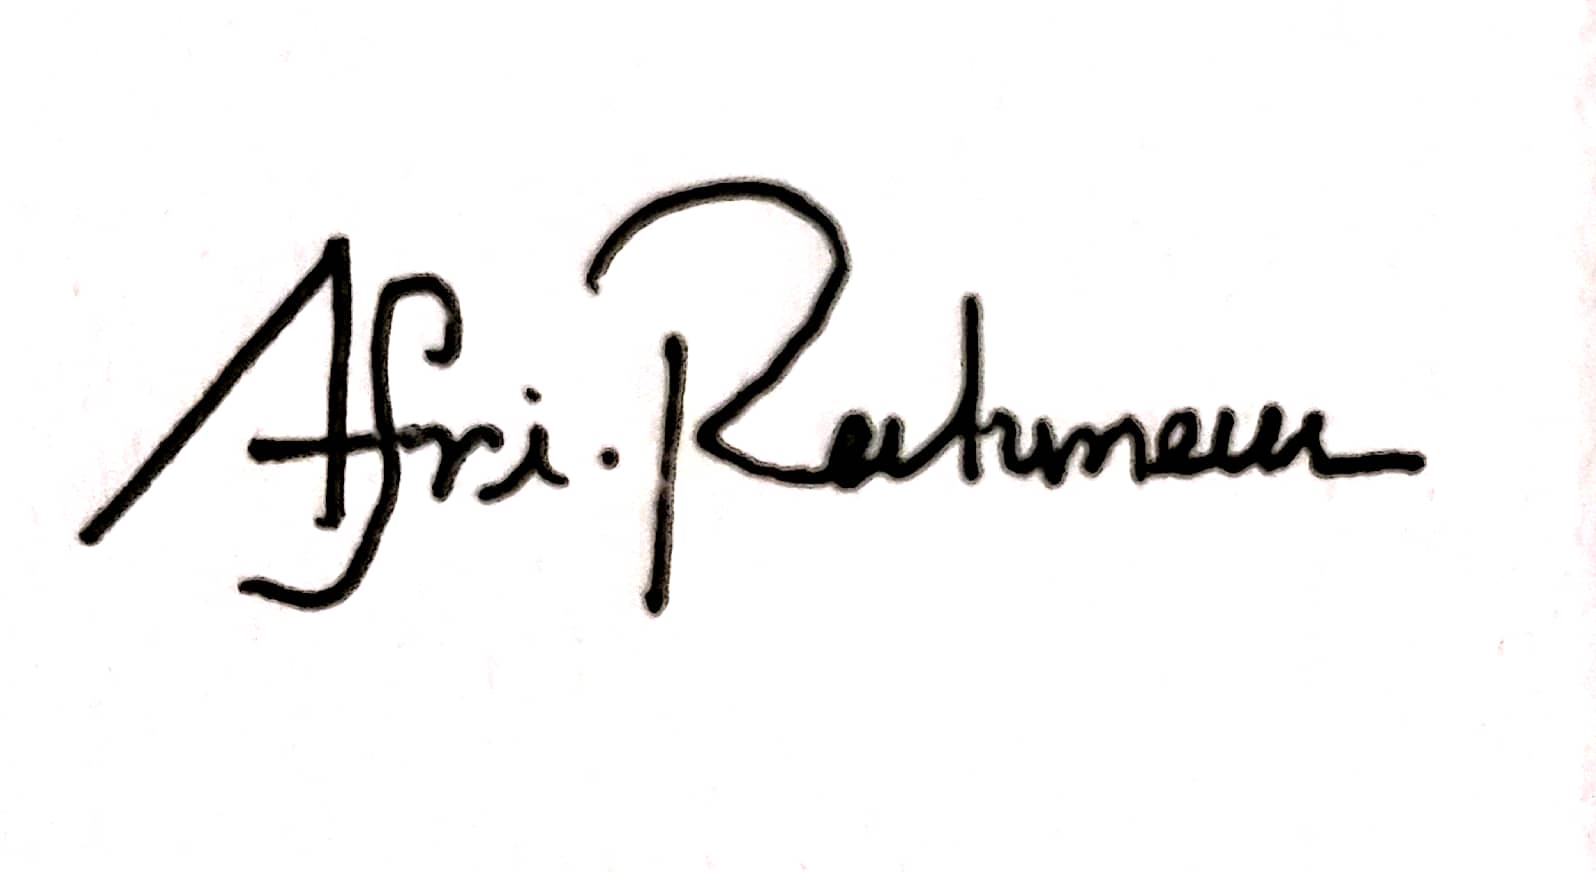 Afri. Rahman